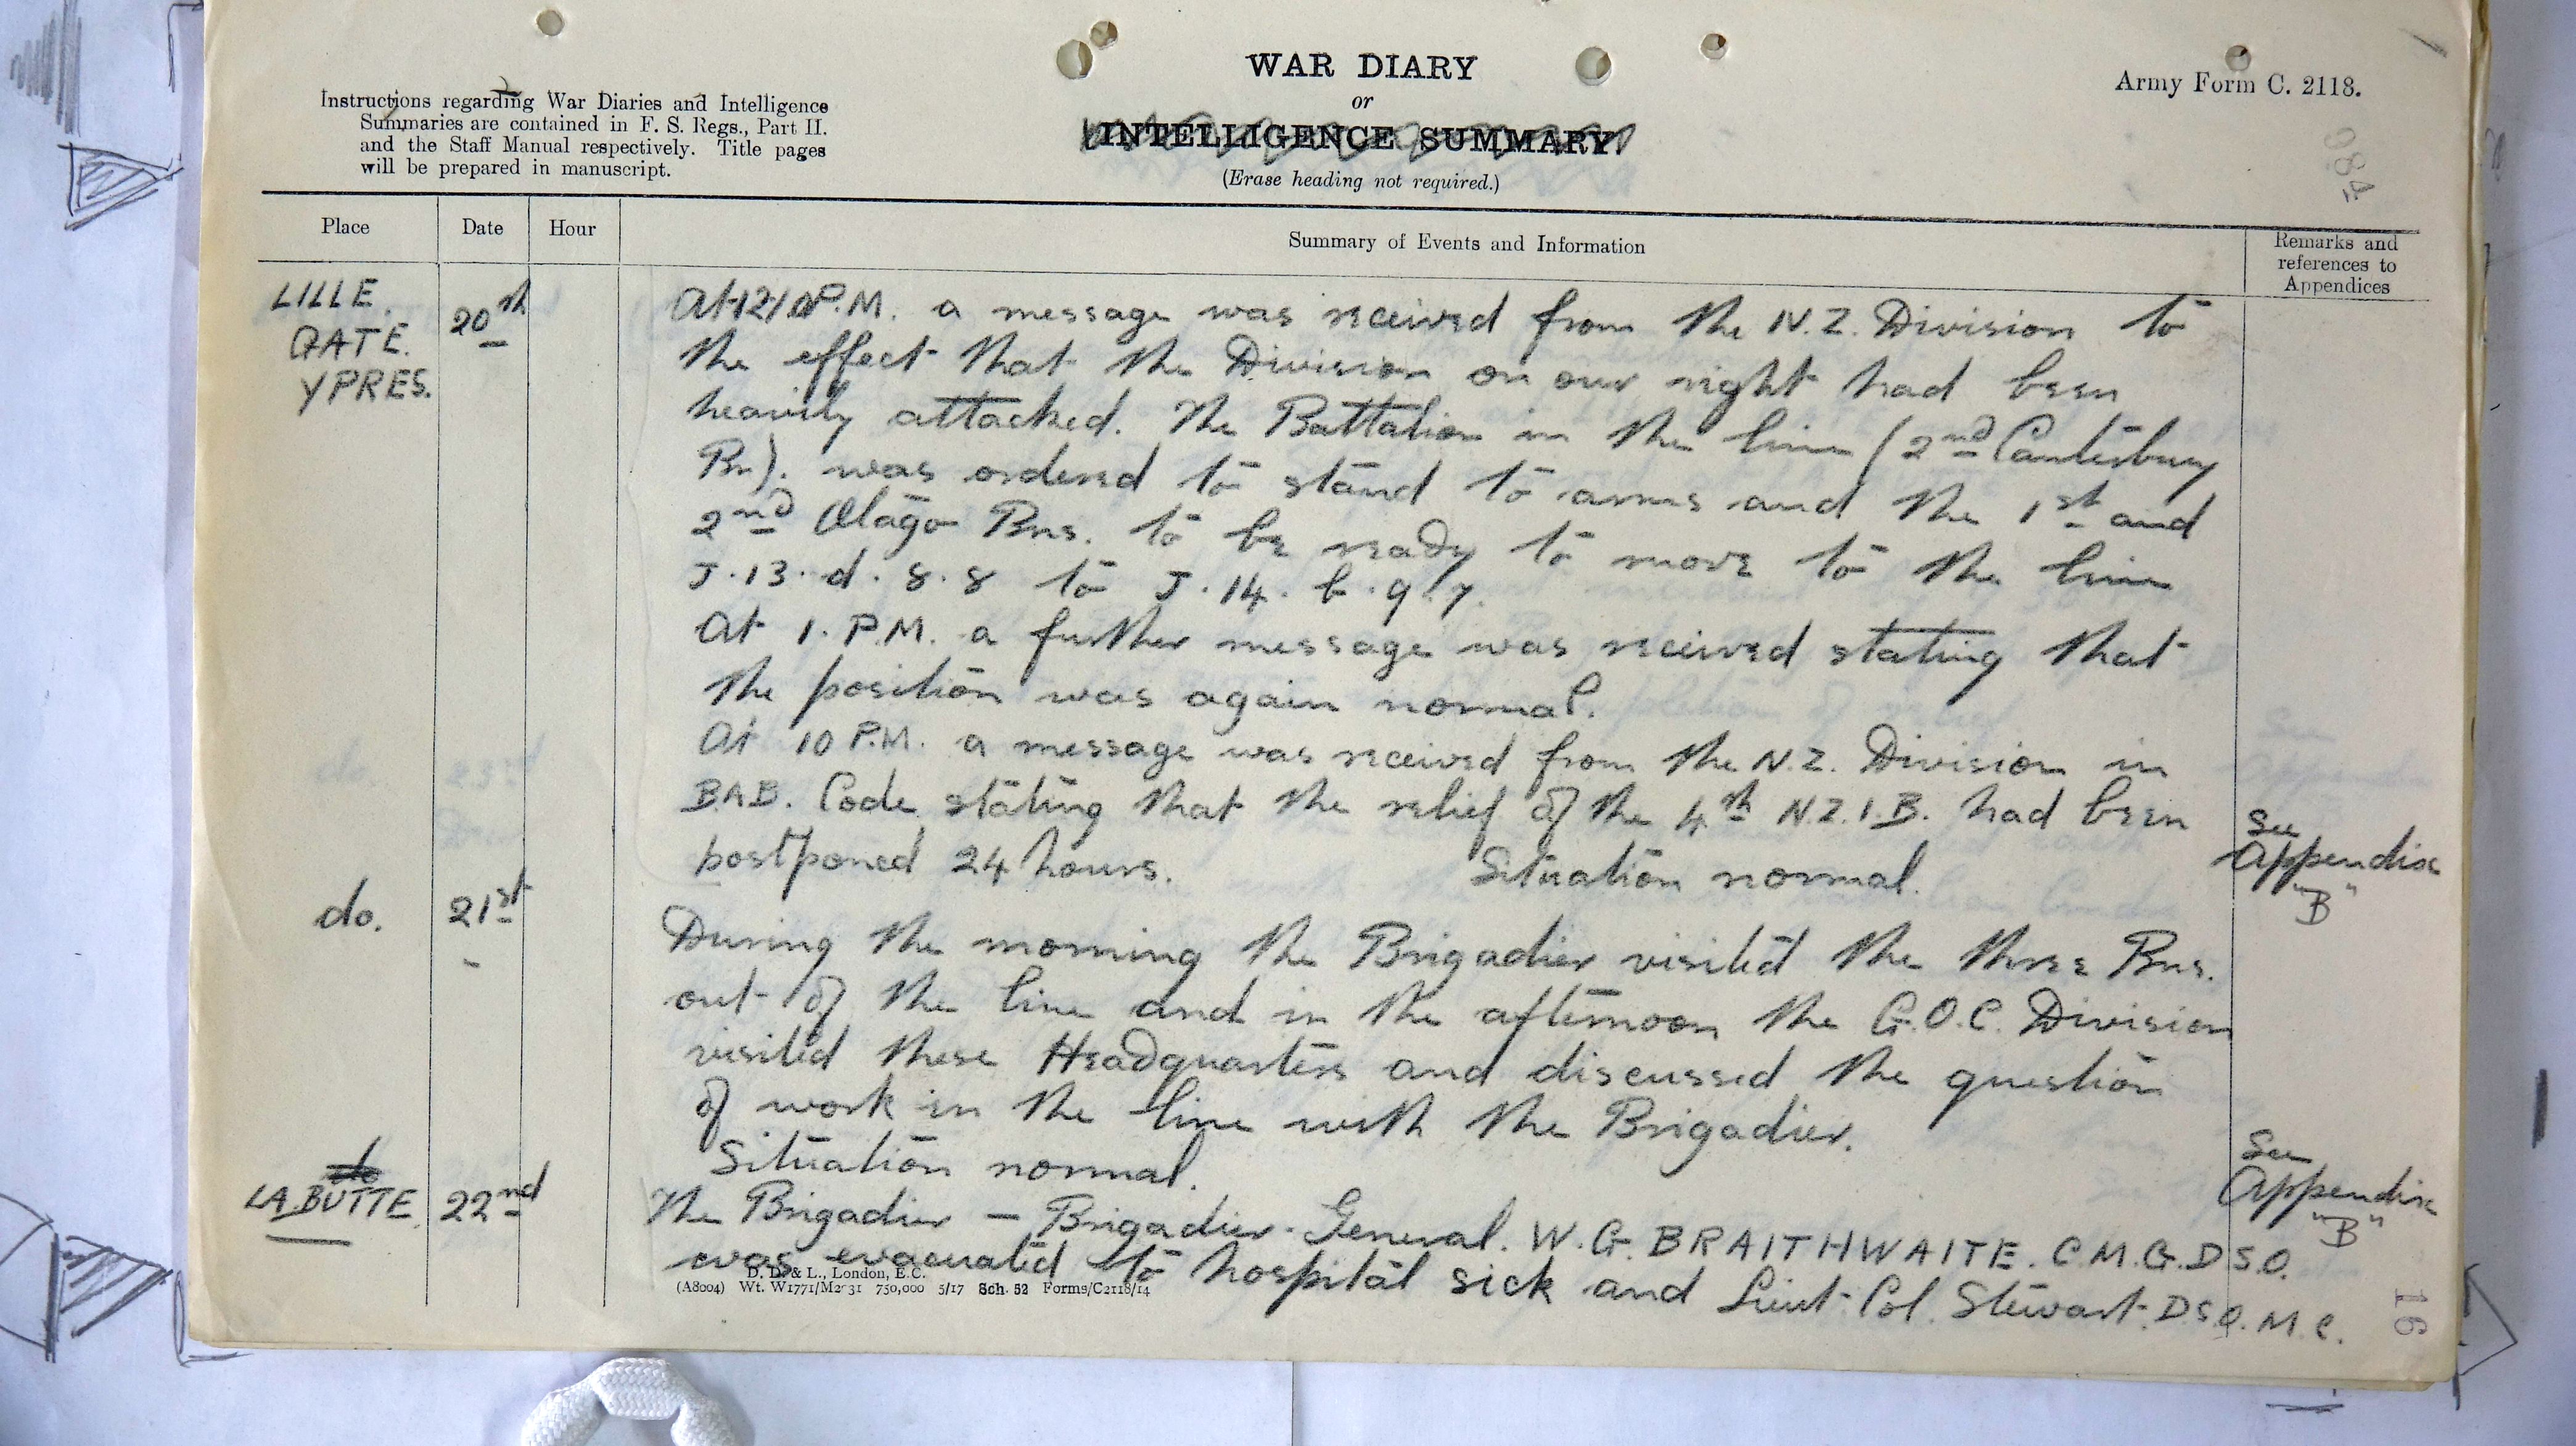 WAR DIARY
or
INTELLIGENCE SUMMARY.
(Erase heading not required.)
Army Form C. 2118.
Instructions regarding War Diaries and Intelligence
Summaries are contained in F. S. Regs., Part II.
and the Staff Manual respectively. Title pages
will be prepared in manuscript.
Place Date Hour Summary of Events and Information Remarks and references to Appendices
LILLE.
GATE.
YPRES.
20th
At 12/10 P.M. a message was received from the N.Z. Division to
the effect that the Division on our right had been
heavily attacked. The Battalion in the line (2nd Canterbury
Bn). was ordered to stand to arms and the 1st and
2nd Otago Bns. to be ready to move to the line
J.13.d.8.8 to J.14.b.9.7.
At 1. P.M. a further message was received stating that
the position was again normal.
At 10 P.M. a message was received from the N.Z. Division in
B.A.B. Code stating that the relief of the 4th N.Z.I.B. had been
postponed 24 hours. Situation normal.
See
Appendix
"B"
do. 21st
During the morning the Brigadier visited the three Bns.
out of the line and in the afternoon the G.O.C. Division
visited these Headquarters and discussed the question
of work in the line with the Brigadier.
Situation normal.
See
Appendix
"B"
do
LA BUTTE 22nd
The Brigadier – Brigadier-General. W.G. BRAITHWAITE. C.M.G. D.S.O.
was evacuated to hospital sick and Lieut-Col. Stewart. D.S.O. M.C.
D. D. & L., London, E.C.
(A8004) Wt. W1771/M2031 750,000 5/17 Sch. 52 Forms/C2118/14
16